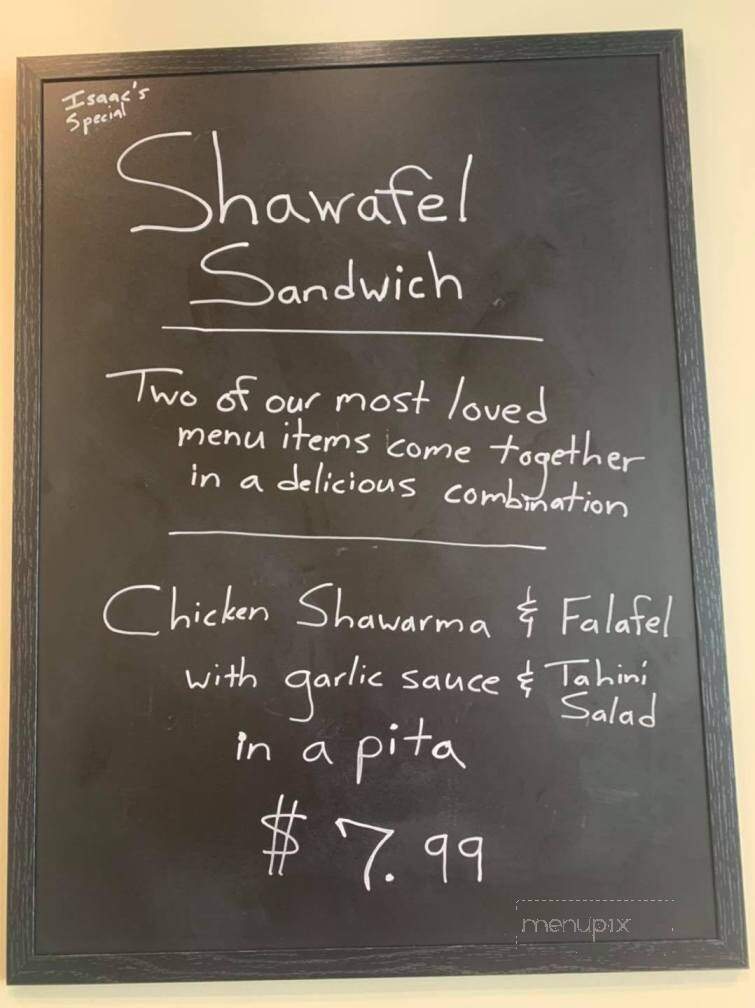 Isaac's
Special
Shawafel
Sandwich
Two of our most loved
menu items come together
in a delicious combination
Chicken Shawarma & Falafel
with garlic sauce & Tahini
Salad
in a pita
$ 7.99
menupix